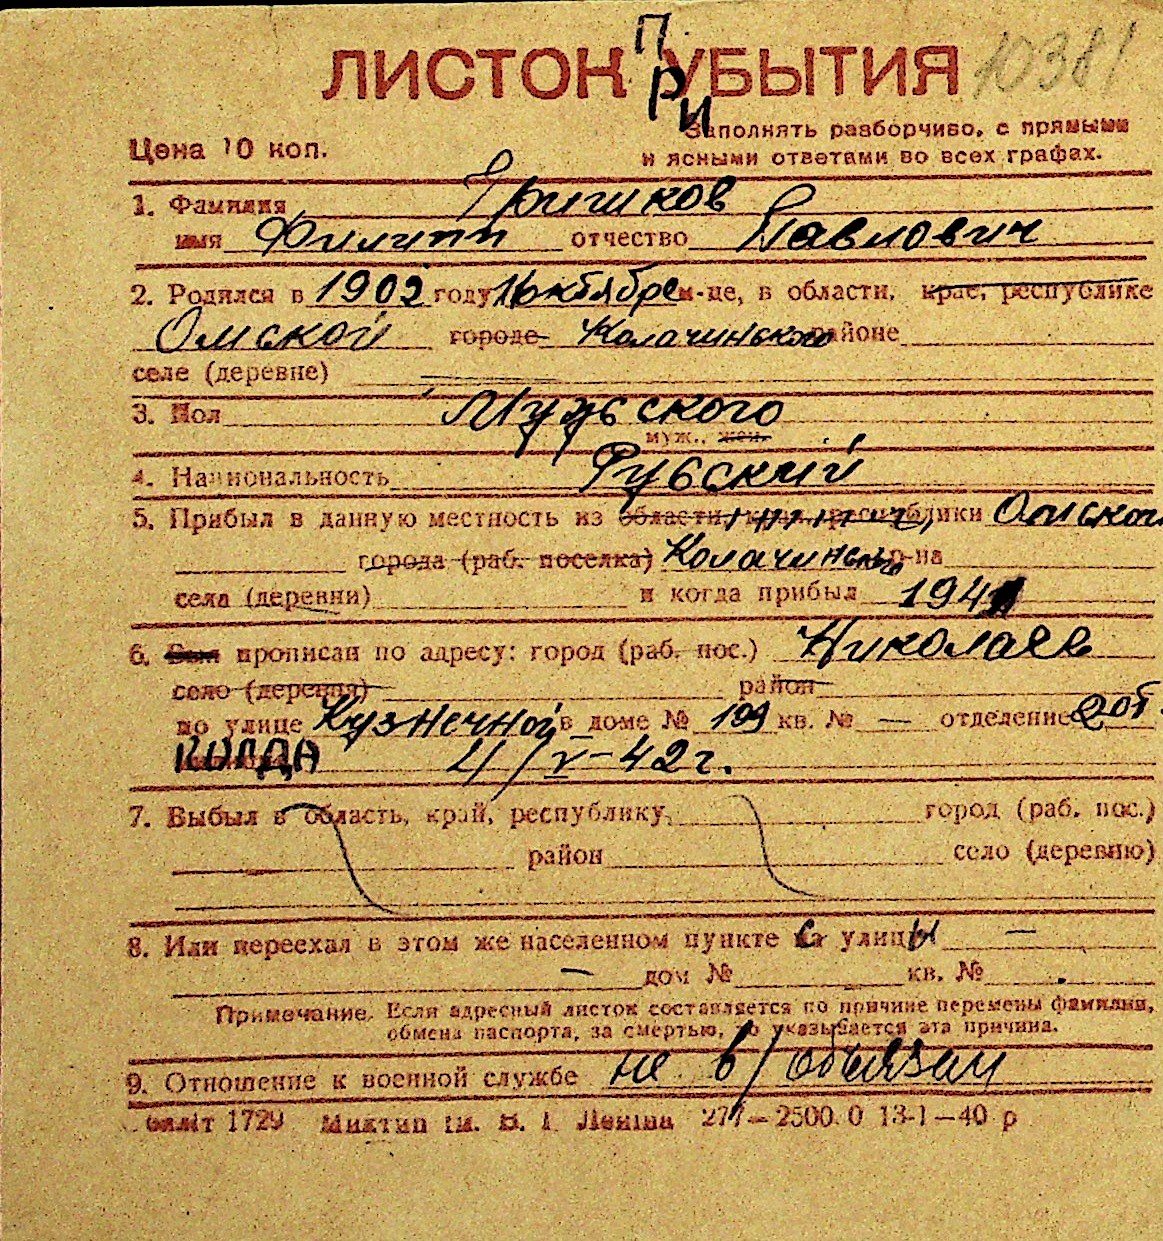 ЛИСТОК УБЫТИЯ
При
10381
Цена 10 коп.
Заполнять разборчиво, с прямыми
и ясными ответами во всех графах.
1. Фамилия Гришков
имя Филипп отчество Павлович
2. Родился в 1902 году 16 октября м-це, в области, крае, республике
Омской городе Колачинского районе
селе (деревне)
3. Пол Мужского
муж., жен.
4. Национальность Русский
5. Прибыл в данную местность из области, края, республики Омской
города (раб. поселка) Колачинского р-на
села (деревни) и когда прибыл 1941
6. Был прописан по адресу: город (раб. пос.) Николаев
село (деревня) район
по улице Кузнечной в доме № 199 кв. № — отделение 2 от.
КОГДА 4/V-42 г.
7. Выбыл в область, край, республику, город (раб. пос.)
район село (деревню)
8. Или переехал в этом же населенном пункте с улицы —
— дом № кв. №
Примечание. Если адресный листок составляется по причине перемены фамилии,
обмена паспорта, за смертью, то указывается эта причина.
9. Отношение к военной службе не в/обязан
1729 Миктип ім. В. І. Леніна 277—2500.0 13-1—40 р